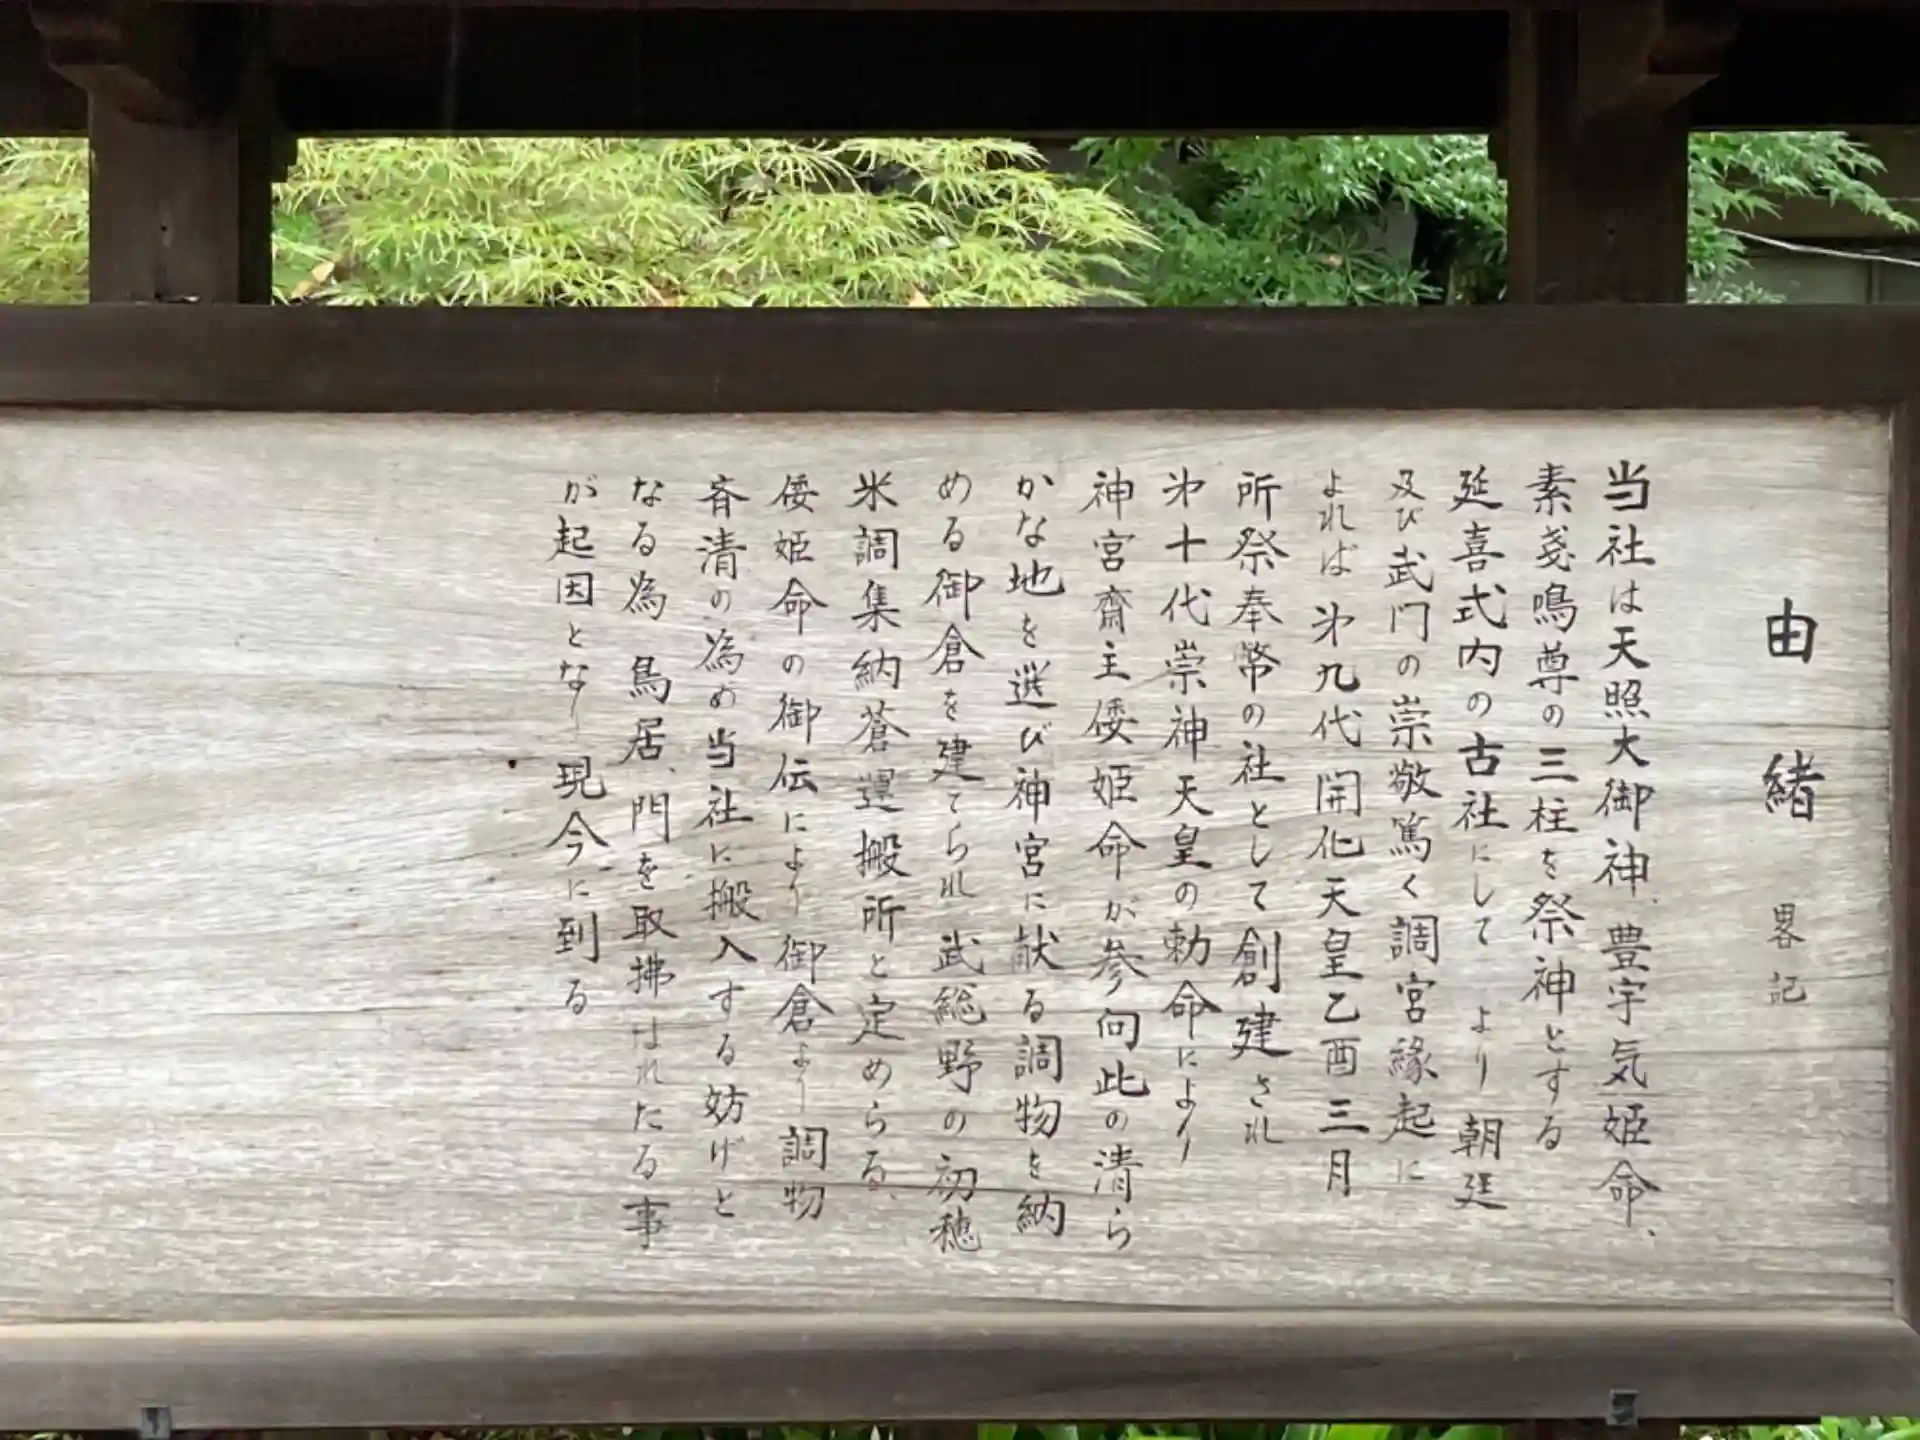 由緒 畧記
当社は天照大御神、豊宇気姫命、
素戔鳴尊の三柱を祭神とする
延喜式内の古社にして より 朝廷
及び武門の崇敬篤く調宮縁起に
よれば 第九代 開化天皇乙酉三月
所祭奉幣の社として創建され
第十代崇神天皇の勅命により
神宮齋主倭姫命が参向此の清ら
かな地を選び神宮に献る調物を納
める御倉を建てられ 武総野の初穂
米調集納蒼運搬所と定めらる、
倭姫命の御伝により 御倉より調物
斉清の為め当社に搬入する妨げと
なる為 鳥居、門を取拂はれたる事
が起因となり現今に到る